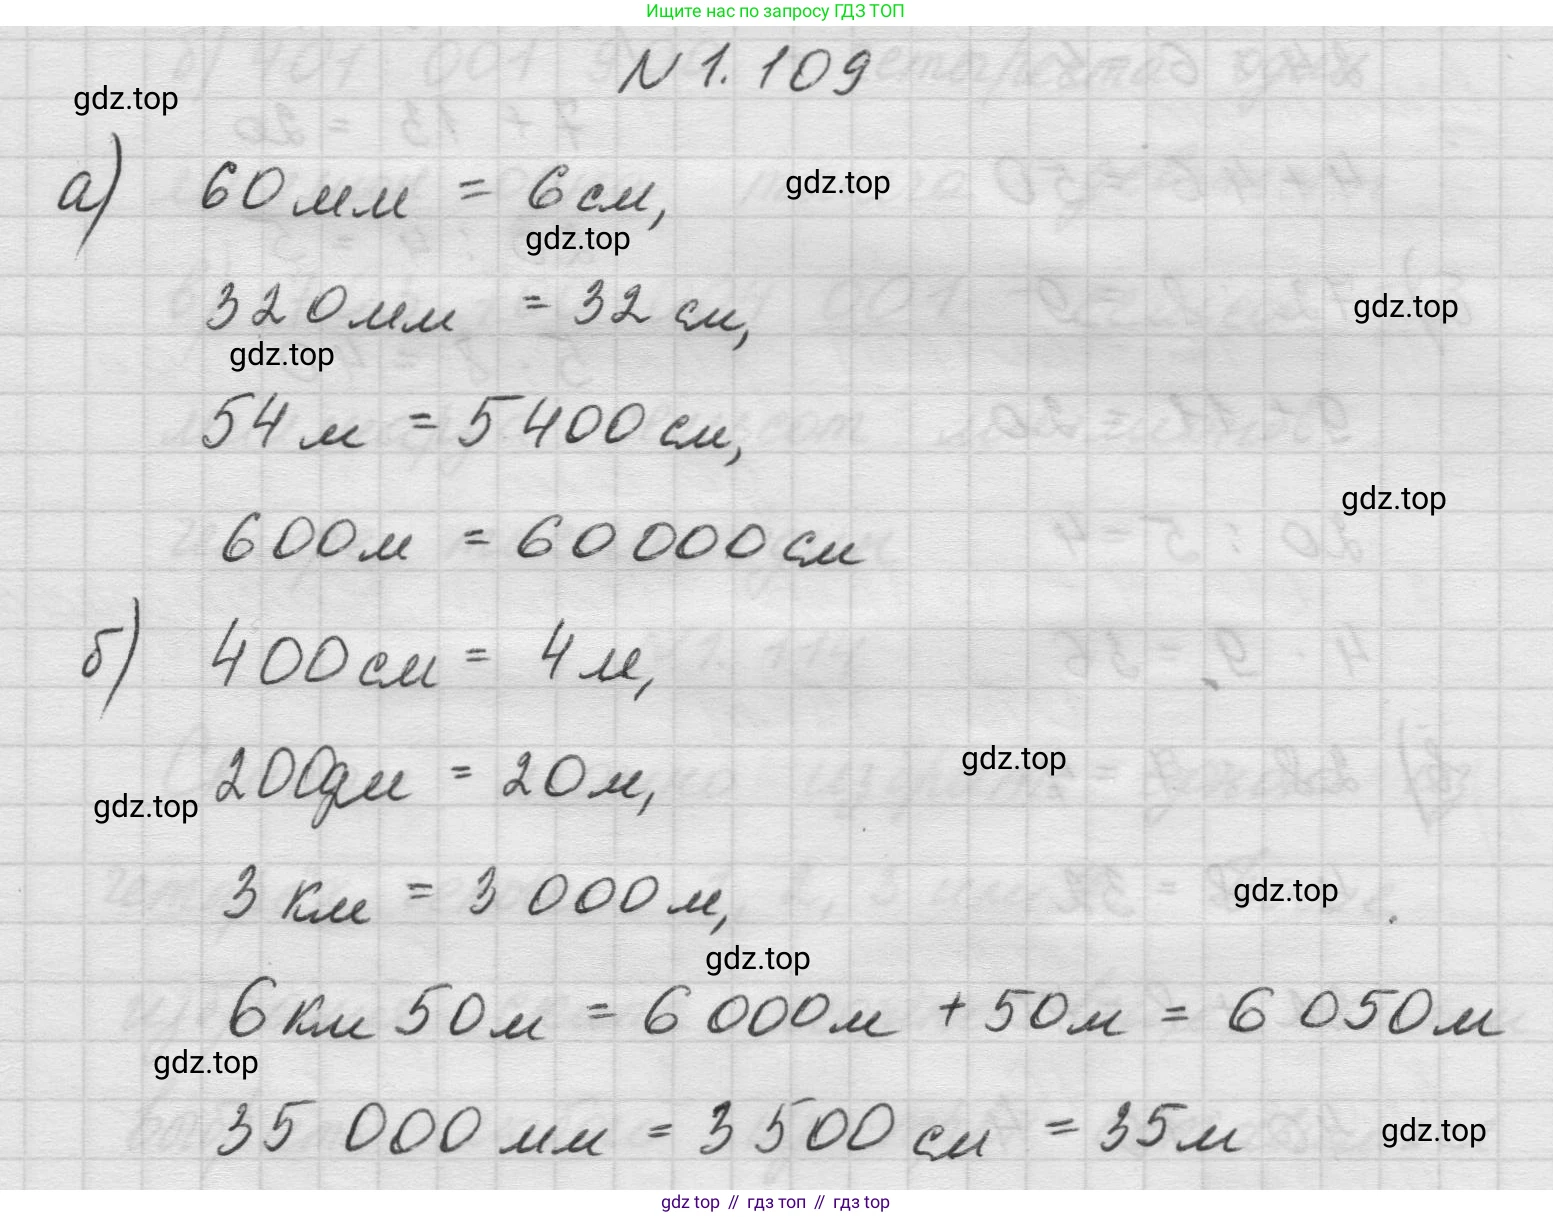 Ищите нас по запросу ГДЗ ТОП
N 1.109
gdz.top
а) 60 мм = 6 см,
gdz.top
gdz.top
320 мм = 32 см,
gdz.top
gdz.top
54 м = 5400 см,
gdz.top
600 м = 60 000 см
б) 400 см = 4 м,
gdz.top
200 дм = 20 м,
gdz.top
3 км = 3 000 м,
gdz.top
gdz.top
6 км 50 м = 6 000 м + 50 м = 6 050 м
gdz.top
35 000 мм = 3 500 см = 35 м
gdz.top
gdz top // гдз топ // гдз top